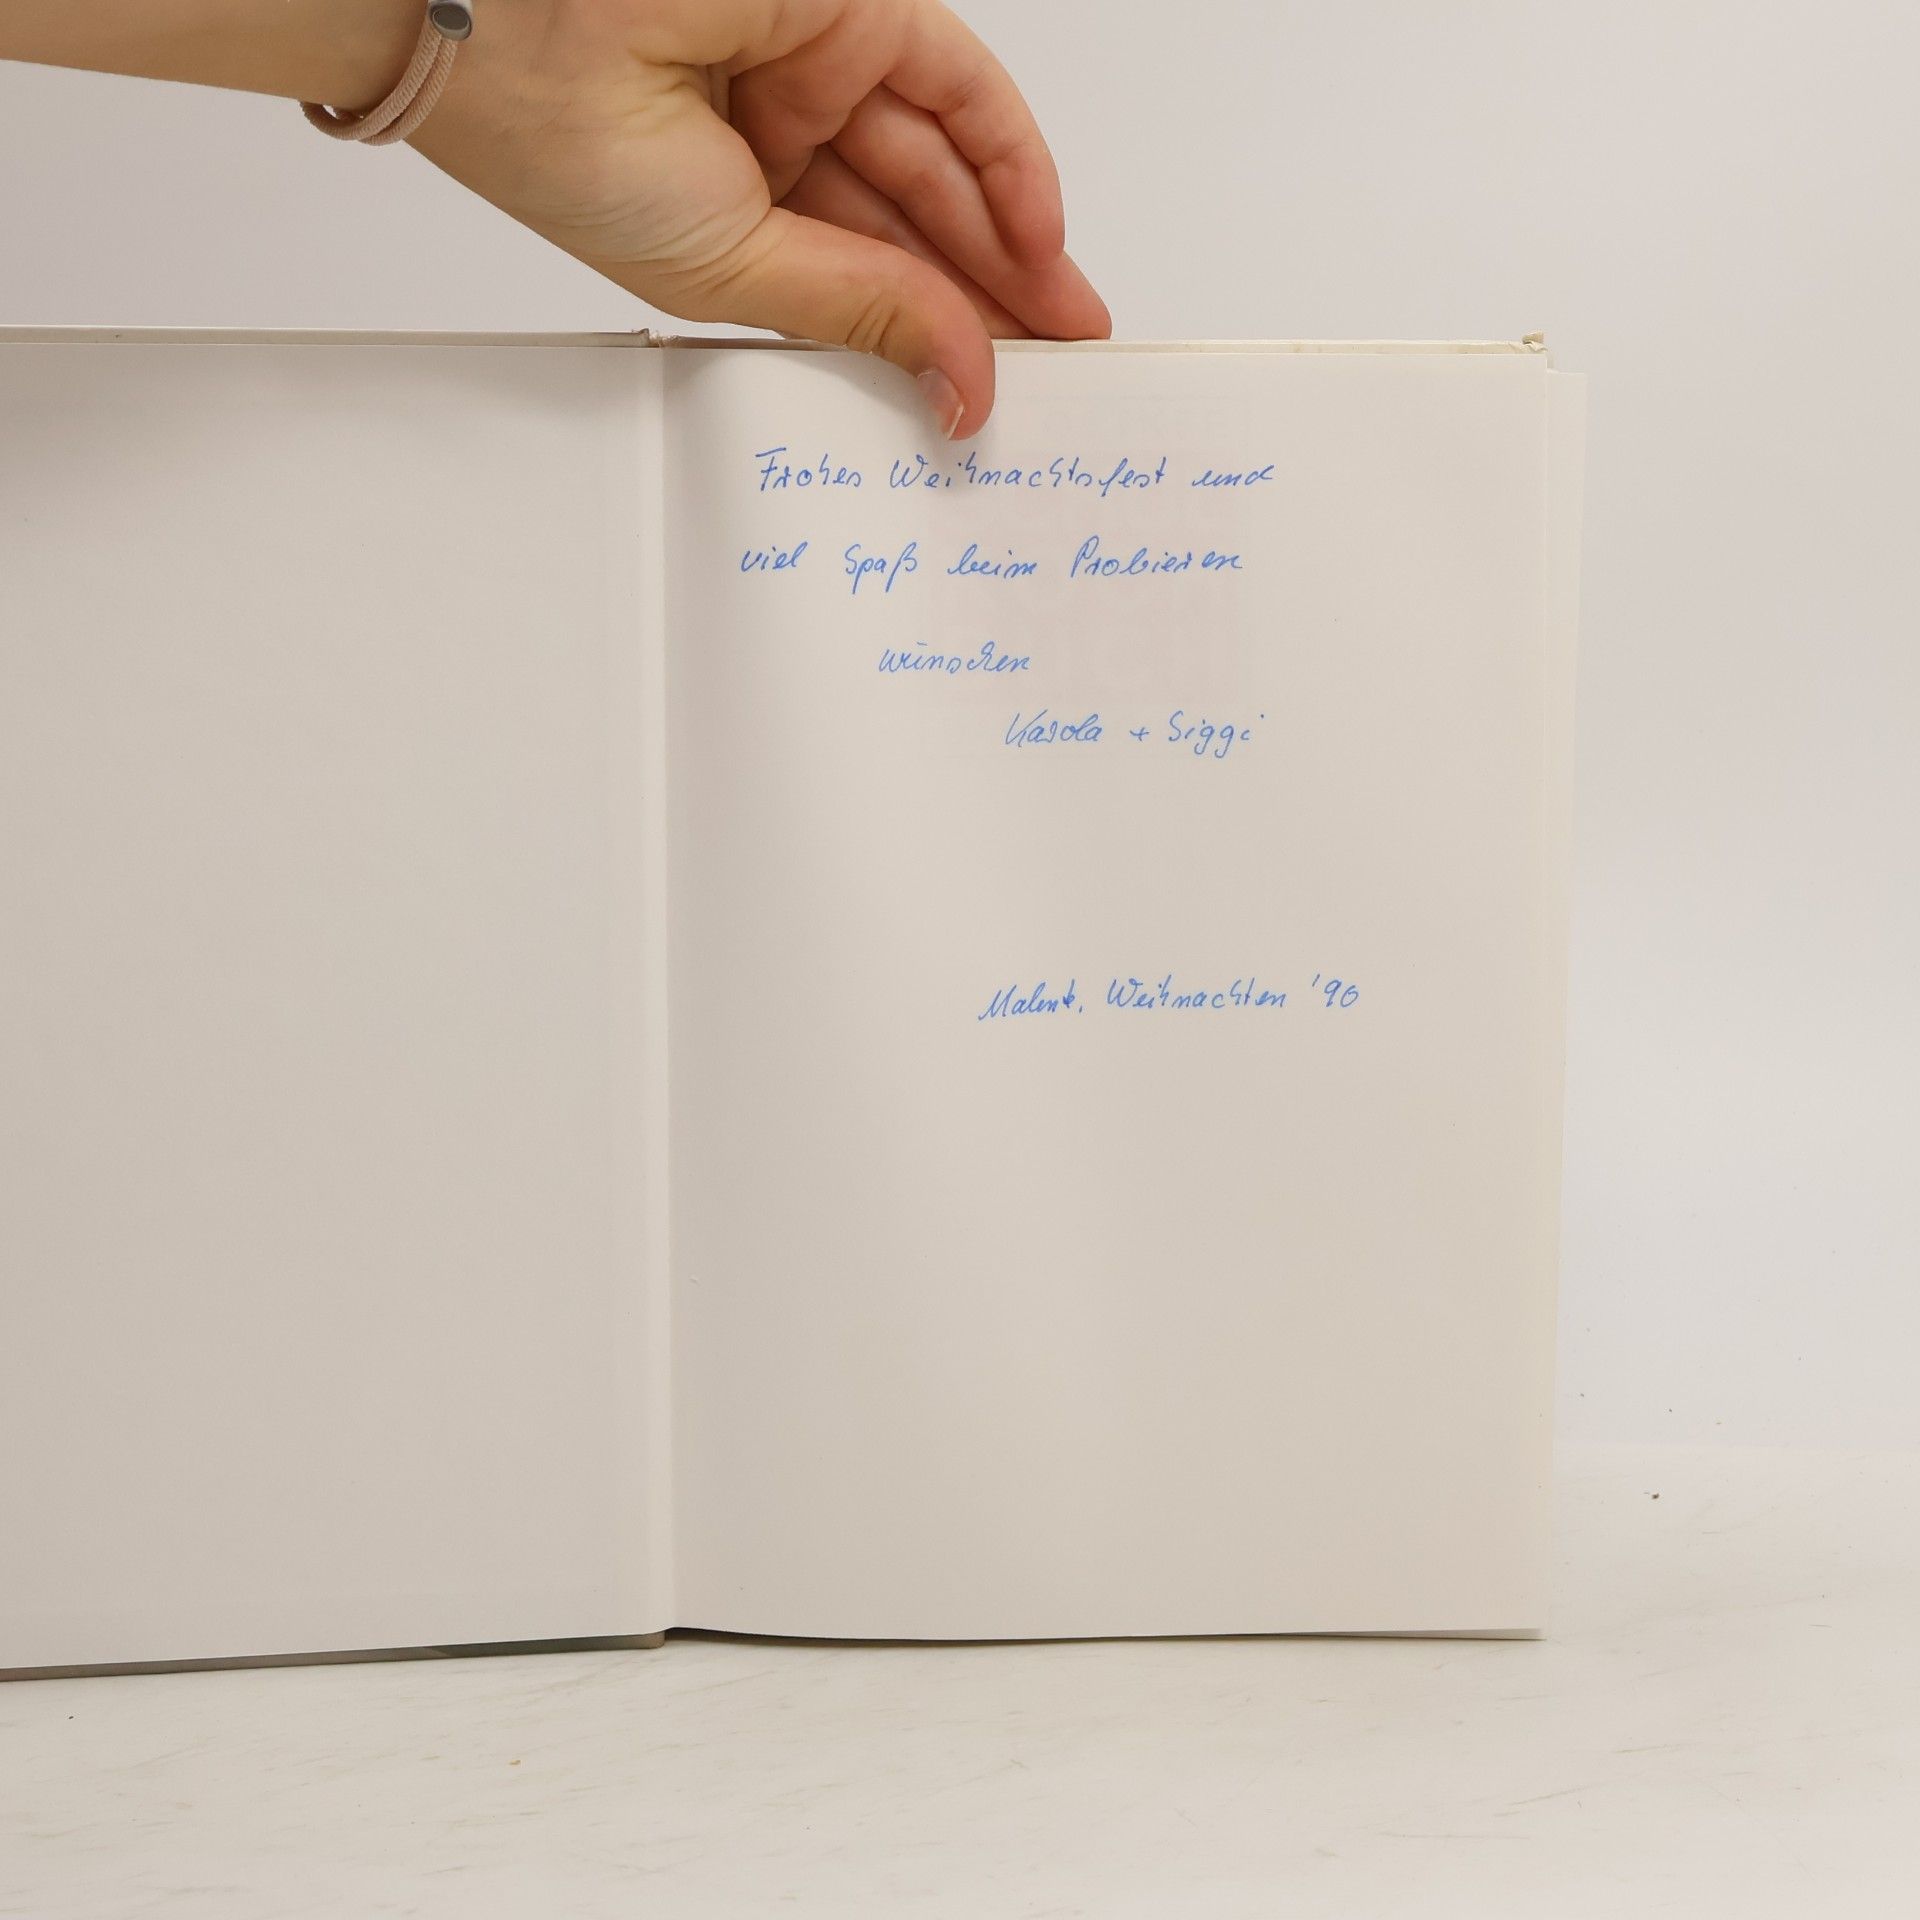 Frohes Weihnachtsfest und
viel Spaß beim Probieren
wünschen
Karola + Siggi
Malente, Weihnachten '90